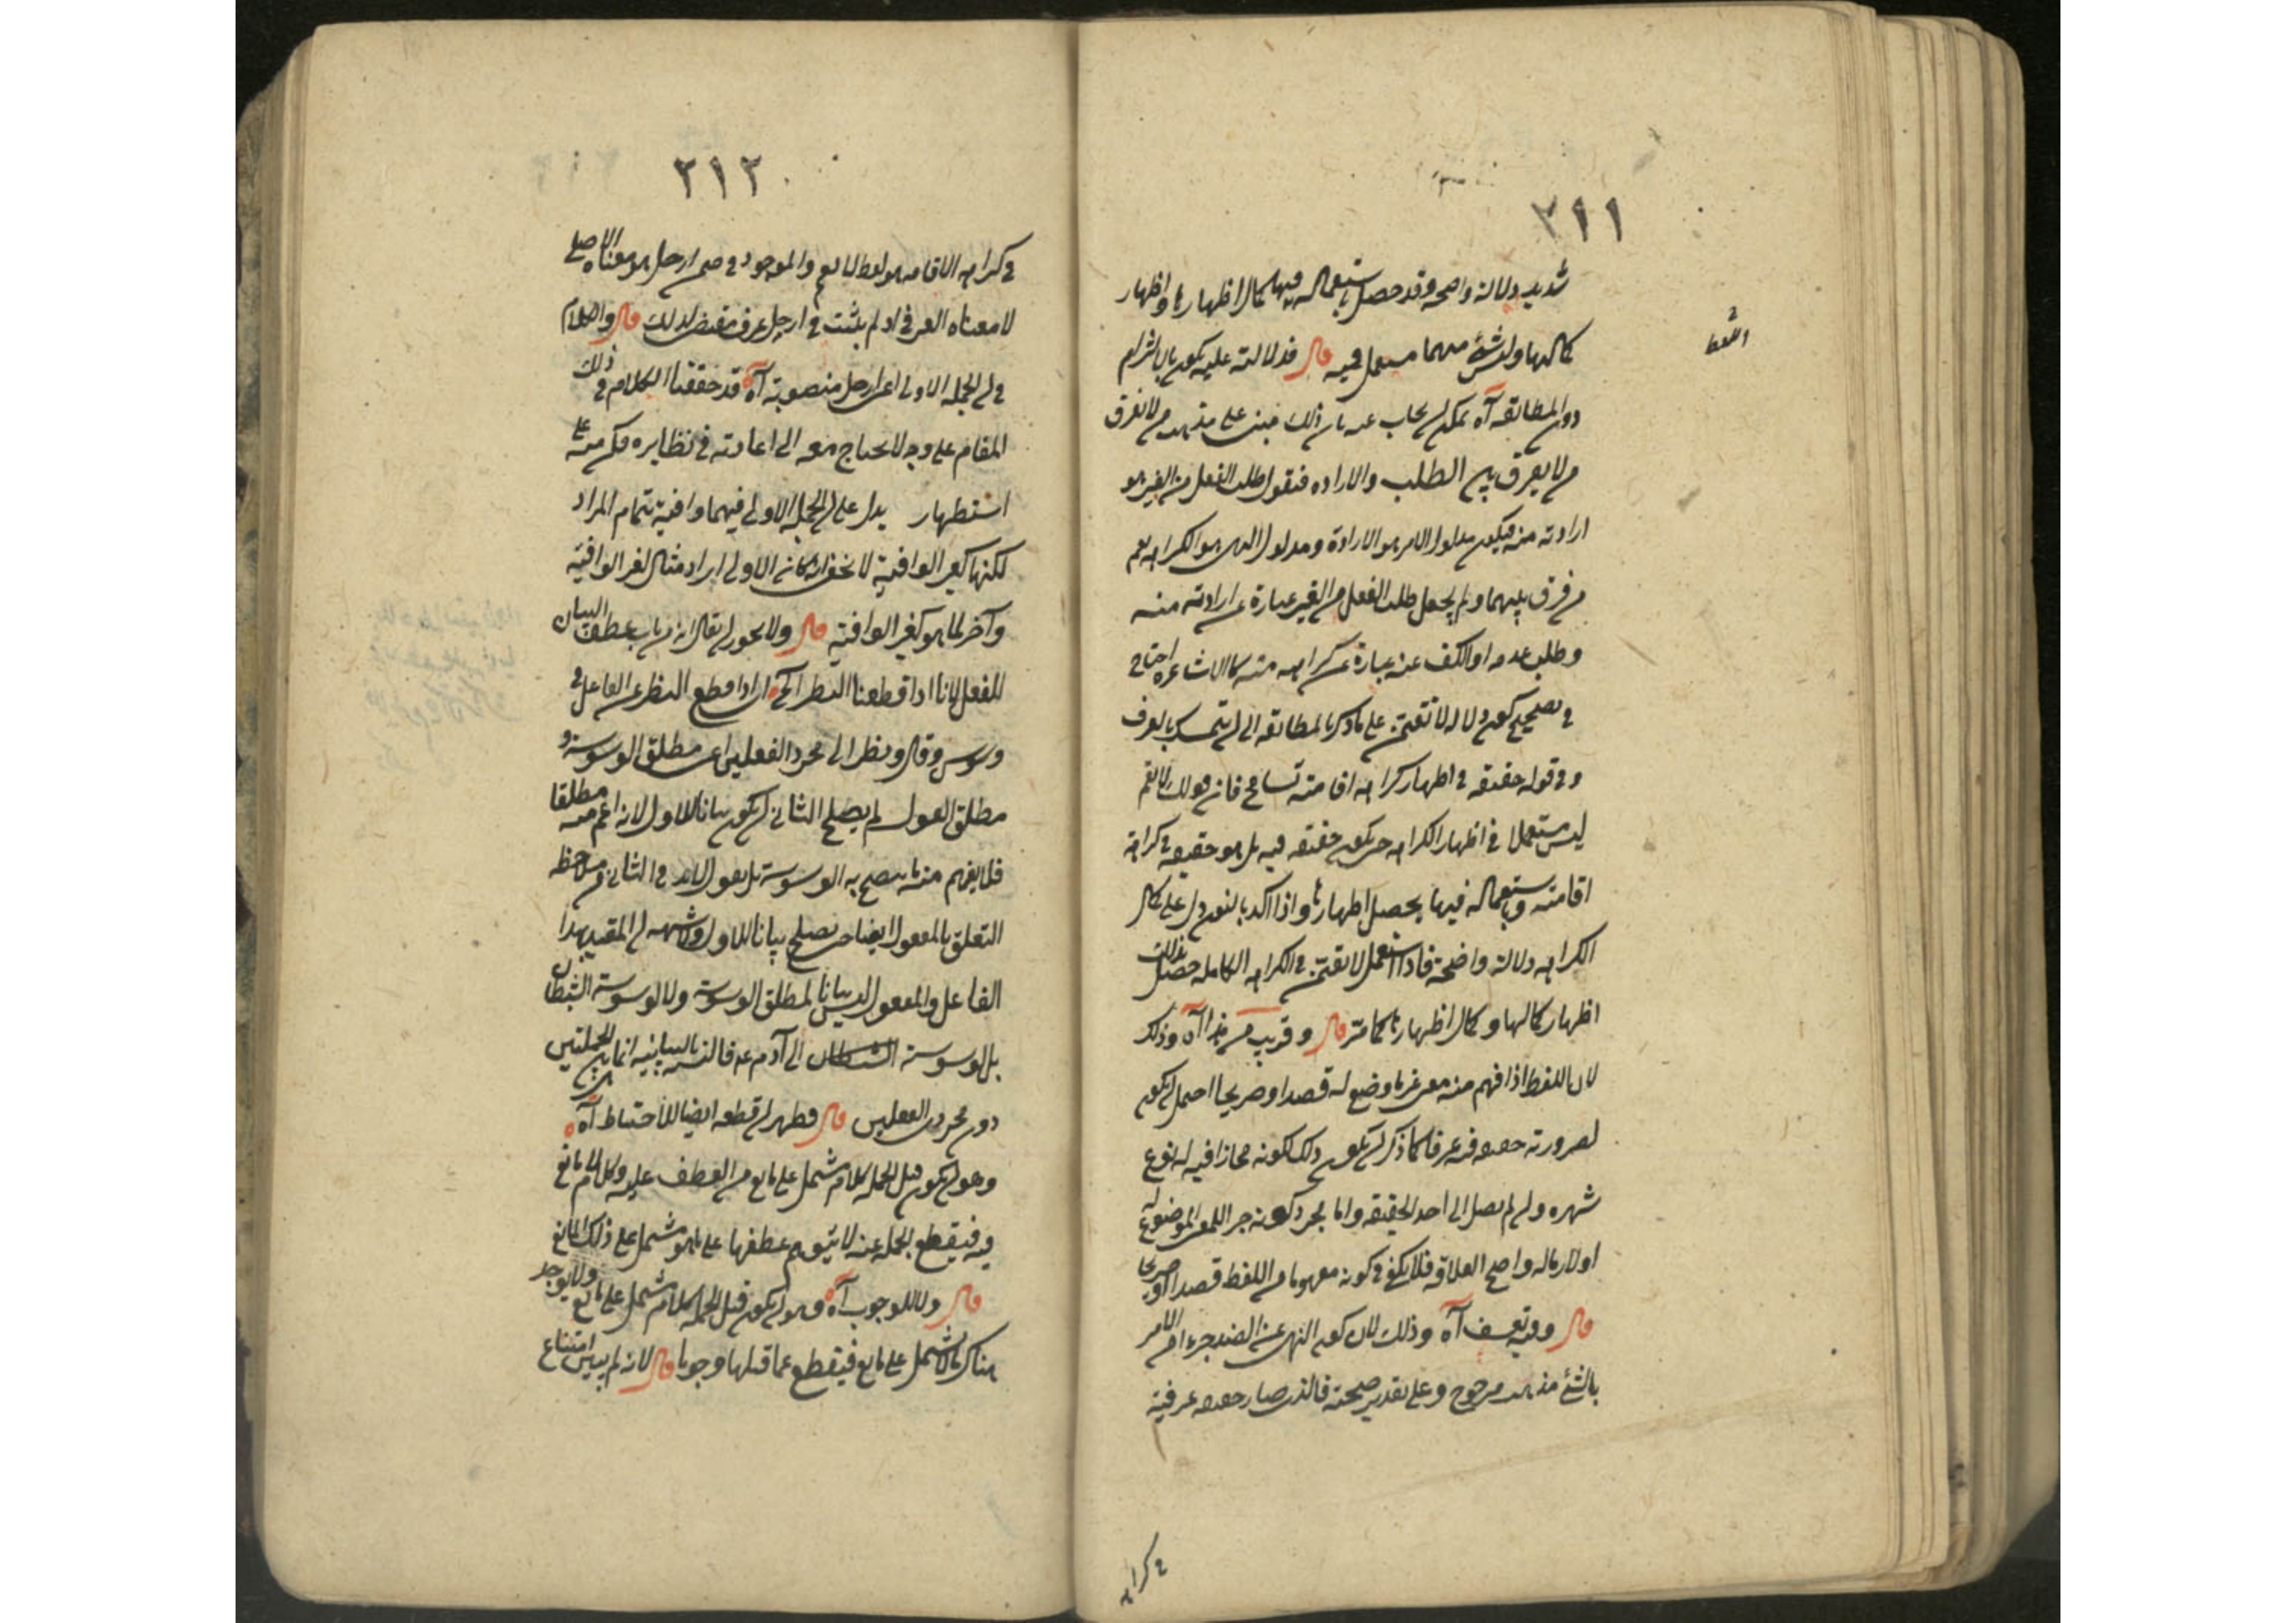 ٢١١
شديد دلالة واضحة وقد حصل باستعماله فيها كمال اظهارها واظهار
كمالها وليس شئ منهما مستعمل فيه قال فدلالته عليه يكون بالالتزام
دون المطابقة آه يمكن ان يجاب عنه بان ذلك مبنى على مذهب من لا يفرق
من لا يفرق بين الطلب والارادة فنقول طلب الفعل من الغير هو
ارادته منه فيكون مدلول الامر هو الارادة ومدلول النهى هو الكراهة نعم
من فرق بينهما ولم يجعل طلب الفعل من الغير عبارة عن ارادته منه
وطلب عدمه او الكف عنه عبارة عن كراهته منه كالاشاعرة احتاج
في تصحيح كون دلالة لا تقيمن على ما ذكر بالمطابقة الى ان يتمسك بالعرف
وفي قوله حقيقة في اظهار كراهة اقامته تسامح فان قولك لا تقم
ليس مستعملا في اظهار الكراهة حتى يكون حقيقة فيه بل هو حقيقة في كراهة
اقامته وباستعماله فيها يحصل اظهارها واذا اكد بالنون دل على كمال
الكراهة دلالة واضحة فاذا استعمل لا تقيمن في الكراهة الكاملة حصل بذلك
اظهار كمالها وكمال اظهارها كما مر قال وقريب من هذا آه وذلك
لان اللفظ اذا فهم منه معنى غير ما وضع له قصدا وصريحا احتمل ان يكون
لصيرورته حقيقة فيه عرفا كما ذكر وان يكون ذلك لكونه مجازا فيه له نوع
شهرة وان لم يصل الى حد الحقيقة واما مجرد كونه جزء المعنى الموضوع له
او لازما له واضح العلاقة فلا يكفى في كونه مفهوما من اللفظ قصدا وصريحا
قال وفيه تعسف آه وذلك لان كون النهى عن الضد جزءا من الامر
بالشئ مذهب مرجوح وعلى تقدير صحته فالذى صار حقيقة عرفية
في كراهة
٢١٢
في كراهة الاقامة هو لفظ لا تقم والموجود في ضمن ارحل هو معناه الاصلى
لا معناه العرفى اذ لم يثبت في ارحل عرف مقتض لذلك قال والكلام
في ان الجملة الاولى اعنى ارحل منصوبة آه قد حققنا الكلام في ذلك
المقام على وجه لا يحتاج معه الى اعادته في نظايره فكن منه على
استظهار يدل على ان الجملة الاولى فيهما وافية بتمام المراد
لكنها كغير الوافية لا يخفى انه كان الاولى ايراد مثال لغير الوافية
وآخر لما هو كغير الوافية قال ولا يجوز ان يقال انه من باب عطف البيان
للفعل لانا اذا قطعنا النظر الخ اراد اذا قطع النظر عن الفاعل في
وسوس وقال ونظر الى مجرد الفعلين اعنى مطلق الوسوسة و
مطلق القول لم يصلح الثانى ان يكون بيانا للاول لانه اعم منه مطلقا
فلا يفهم منه ما يتضح به الوسوسة بل نقول لا بد في الثانى من ملاحظة
التعلق بالمفعول ايضا حتى يصلح بيانا للاول ولا شبهة ان المقيد بهذا
الفاعل والمفعول ليس بيانا لمطلق الوسوسة ولا لوسوسة الشيطان
بل لوسوسة الشيطان الى آدم عم فالنسبة البيانية انما هى بين الجملتين
دون مجرد الفعلين قال فظهر ان قطعه ايضا للاحتياط آه
وهو ان يكون قبل الجملة كلام مشتمل على مانع من العطف عليه وكلام لا مانع
فيه فيقطع الجملة عنه لئلا يتوهم عطفها على ما هو مشتمل على ذلك المانع
قال ولا للوجوب آه وهو ان يكون قبل الجملة كلام مشتمل على مانع ولا يوجد
هناك ما لا يشتمل على مانع فيقطع عما قبلها وجوبا قال لانه لم يبين امتناع